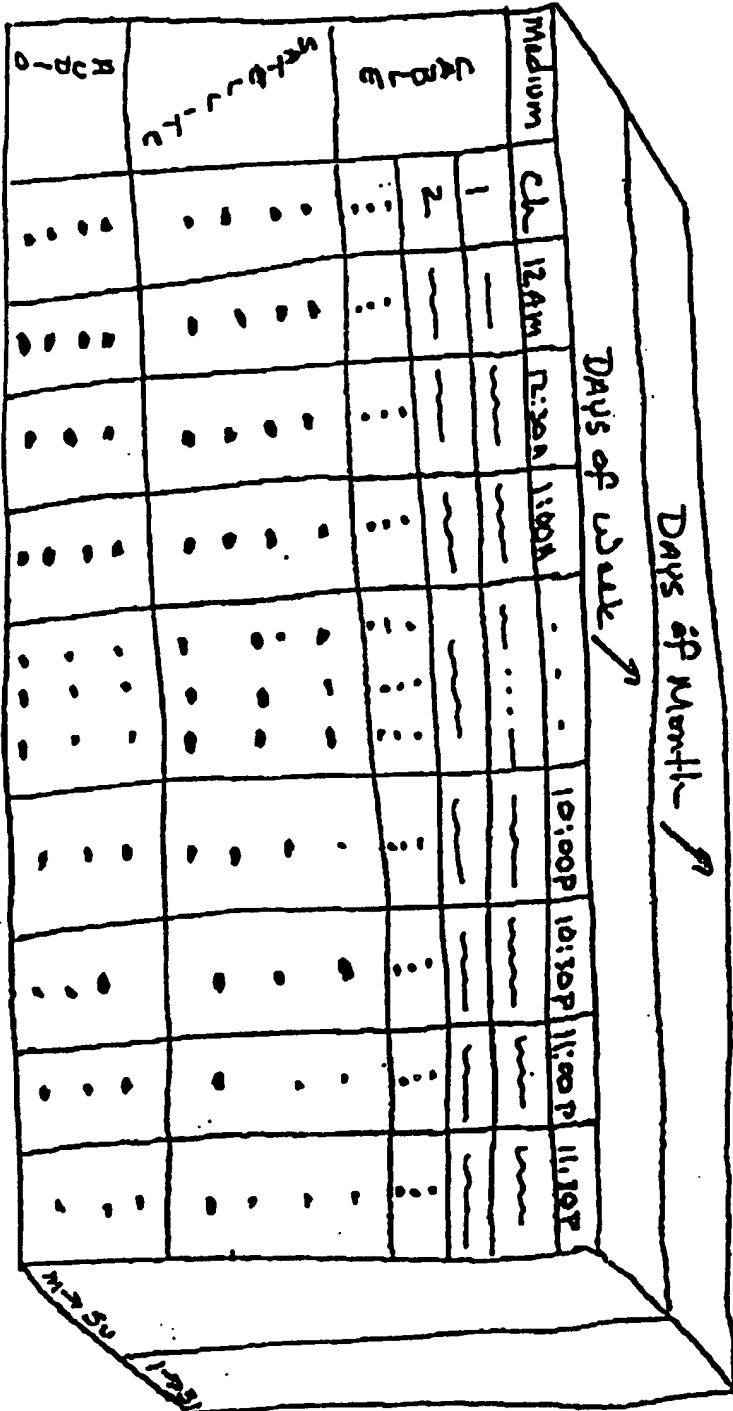 DAYS of Month
DAYS of Week
Medium Ch 12AM 12:30A 1:00A . . . 10:00P 10:30P 11:00P 11:30P
CABLE 1
2
SATELLITE
AUDIO
M→Su
1→